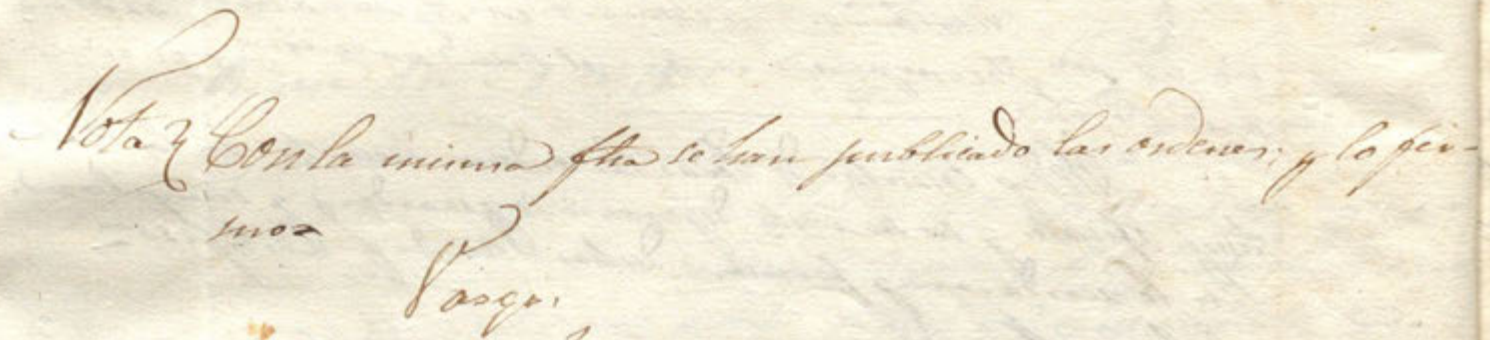 Nota } Con la misma fha se han publicado las ordenes; y lo fir-
mo=
Vasqz.